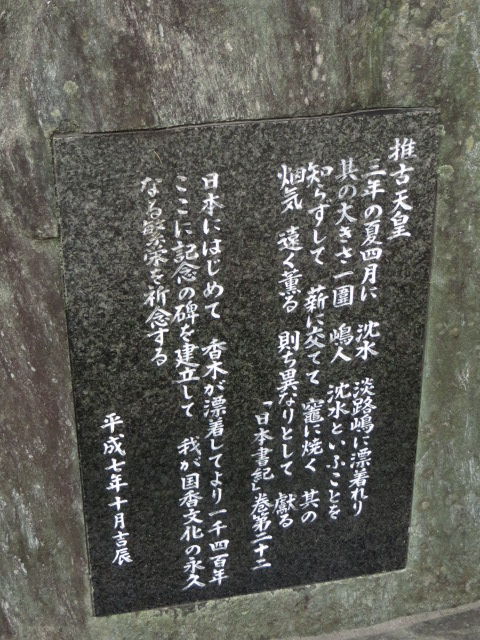 推古天皇
三年の夏四月に 沈水 淡路嶋に漂着れり
其の大きさ一圍 嶋人 沈水といふことを
知らずして 薪に交てて 竈に焼く 其の
烟気 遠く薫る 則ち異なりとして 獻る
「日本書記」巻第二十二
日本にはじめて 香木が漂着してより一千四百年
ここに記念の碑を建立して 我が国香文化の永久
なる繁栄を祈念する
平成七年十月吉辰